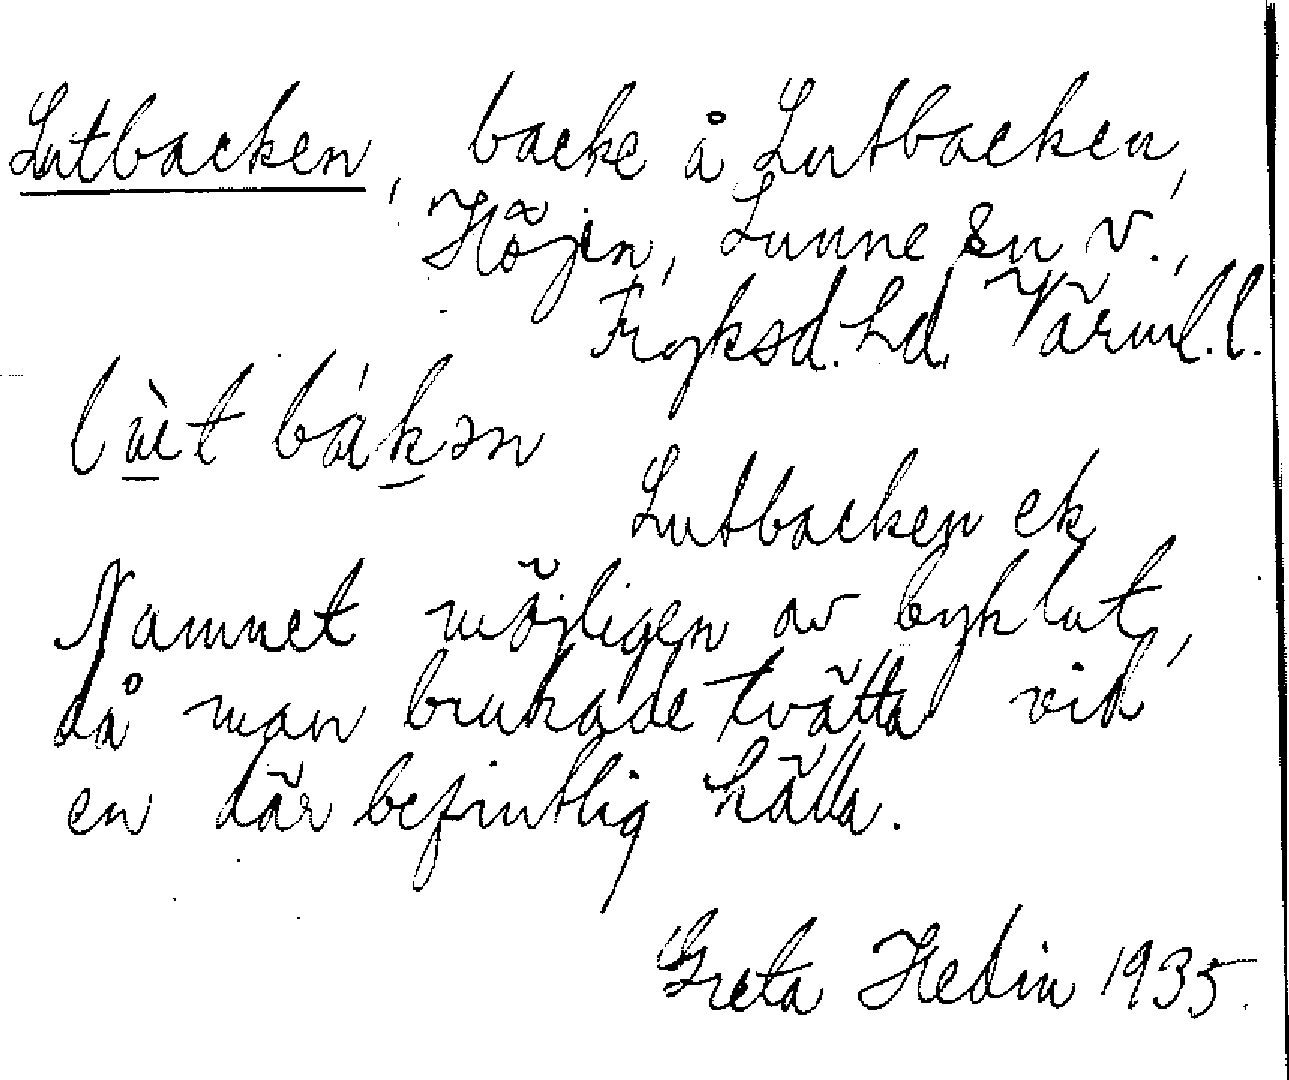 Lutbacken, backe å Lutbacken,
Höjen, Sunne sn V.,
Fryksd. hd. Värml. l.
lùt bákən
Lutbacken ek
Namnet möjligen av byklut,
då man brukade tvätta vid
en där befintlig hälla.
Greta Hedin 1935.